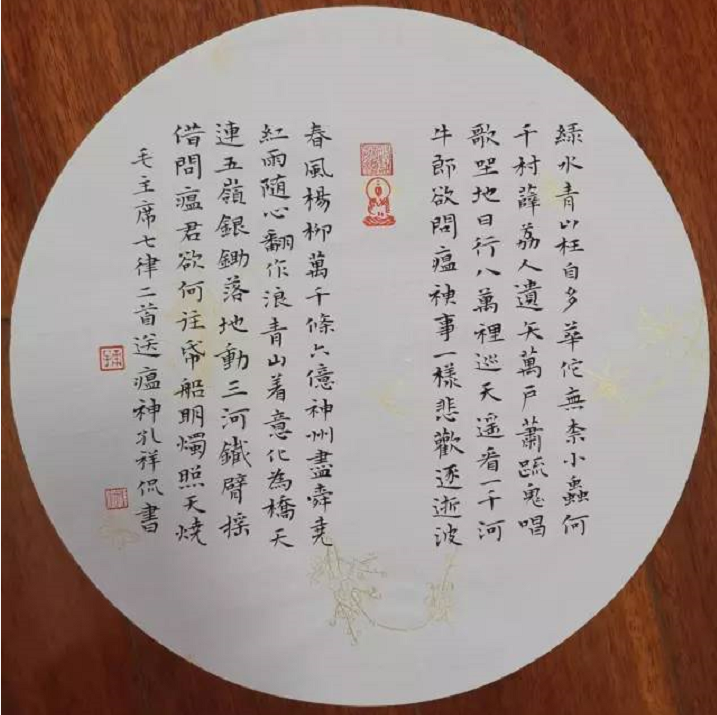 綠水青山枉自多華佗無柰小蟲何
千村薜荔人遺矢萬戶蕭疏鬼唱
歌坐地日行八萬裡巡天遥看一千河
牛郎欲問瘟神事一樣悲歡逐逝波
春風楊柳萬千條六億神州盡舜堯
紅雨随心翻作浪青山着意化為橋天
連五嶺銀鋤落地動三河鐵臂摇
借問瘟君欲何往帋船明燭照天燒
毛主席七律二首送瘟神孔祥侃書